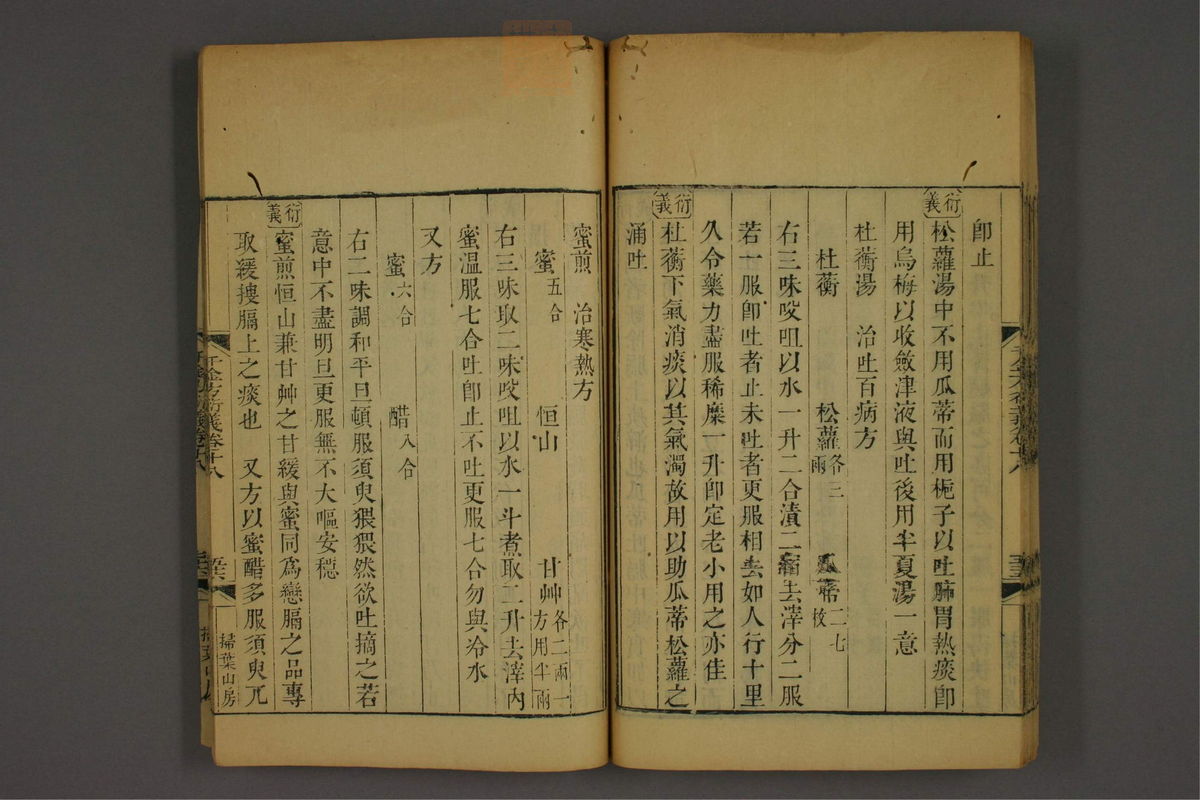 卽止
衍義
松蘿湯中不用瓜蒂而用梔子以吐肺胃熱痰卽
用烏梅以收斂津液與吐後用半夏湯一意
杜蘅湯　治吐百病方
杜蘅　松蘿各三兩　瓜蒂二七枚
右三味㕮咀以水一升二合漬二宿去滓分二服
若一服卽吐者止未吐者更服相去如人行十里
久令藥力盡服稀糜一升卽定老小用之亦佳
衍義
杜蘅下氣消痰以其氣濁故用以助瓜蒂松蘿之
涌吐
蜜煎　治寒熱方
蜜五合　恒山　甘艸各二兩一方用半兩
右三味取二味㕮咀以水一斗煮取二升去滓內
蜜溫服七合吐卽止不吐更服七合勿與冷水
又方
蜜六合　醋八合
右二味調和平旦頓服須臾猥猥然欲吐摘之若
意中不盡明旦更服無不大嘔安穩
衍義
蜜煎恒山兼甘艸之甘緩與蜜同爲戀膈之品專
取緩摟膈上之痰也　又方以蜜醋多服須臾兀
千金方衍義卷十八
掃葉山房